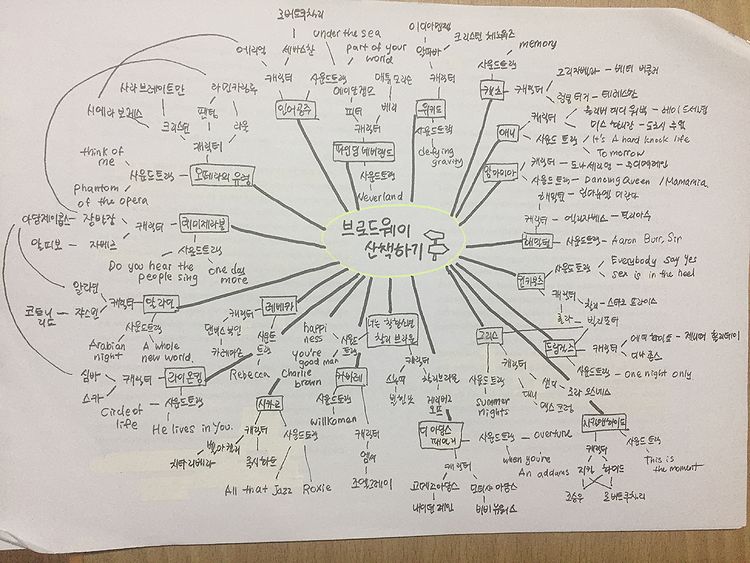 브로드웨이
산책하기
로버트쿠차리
에리얼
세바스찬
캐릭터
사운드트랙
under the sea
part of your
world
인어공주
피터
캐릭터
파인딩 네버랜드
사운드트랙
Neverland
이디나멘젤
크리스틴 체노웨스
캐릭터
위키드
사운드트랙
defying
gravity
memory
사운드트랙
캣츠
캐릭터
그리자벨라
럼텀터거
애니
캐릭터
사운드트랙
It's A hard knock life
Tomorrow
맘마미아
캐릭터
사운드트랙
Dancing Queen / Mamamia
캐릭터
해밀턴
사운드트랙
Aaron Burr, Sir
킨키부츠
사운드트랙
Everybody say Yes
Sex is in the heel
캐릭터
찰리
롤라
빌리포터
드림걸즈
캐릭터
사운드트랙
one night only
지킬앤하이드
사운드트랙
This is
the moment
캐릭터
지킬
하이드
조승우
로버트쿠차리
그리스
사운드트랙
summer
nights
캐릭터
대니
샌디
너는 착한사람
찰리 브라운
캐릭터
스누피
찰리브라운
사운드트랙
happi
ness
you're
good man
Charlie
brown
더 아담스
패밀리
사운드트랙
overture
when you're
An addams
캐릭터
고메즈아담스
모티시아 아담스
내이단 레인
비비 뉴워스
카바레
사운드트랙
willkomen
캐릭터
엠씨
조엘그레이
레베카
캐릭터
댄버스부인
사운드
트랙
Rebecca
시카고
캐릭터
벨마켈리
록시하트
치타리베라
사운드트랙
All that Jazz
Roxie
라이온킹
캐릭터
심바
스카
사운드트랙
Circle of
life
He lives in You.
알라딘
캐릭터
알라딘
쟈스민
코트니
리드
사운드트랙
Arabian
night
A whole
new world.
레미제라블
캐릭터
장발장
자베르
사운드트랙
Do you hear the
people sing
one day
more
오페라의 유령
캐릭터
팬텀
라울
크리스틴
사라 브레이트만
시에라 보게스
라민카림루
사운드트랙
think of
me
Phantom
of the opera